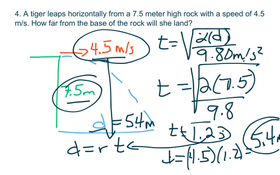 4. A tiger leaps horizontally from a 7.5 meter high rock with a speed of 4.5
m/s. How far from the base of the rock will she land?
→ 4.5 m/s
7.5m
d = 5.4m
d = r t
t = √2(d)
9.80m/s²
t = √2(7.5)
9.8
t = 1.23
d = (4.5)(1.2)=
5.4m